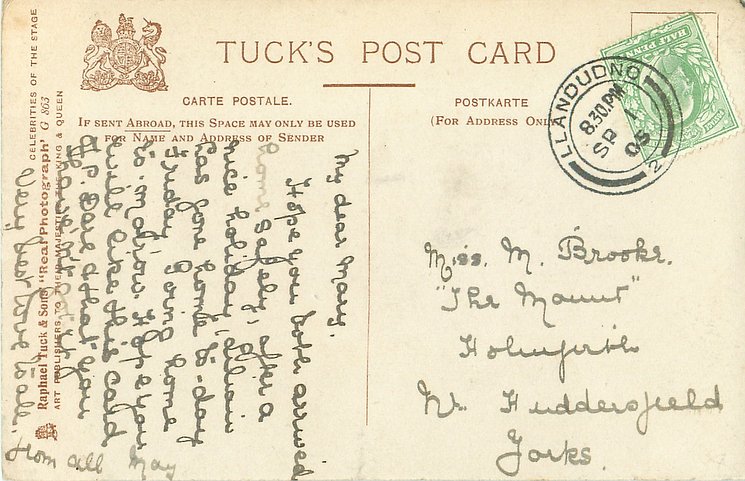 TUCK'S POST CARD
CARTE POSTALE.
IF SENT ABROAD, THIS SPACE MAY ONLY BE USED
FOR NAME AND ADDRESS OF SENDER
POSTKARTE
(FOR ADDRESS ONL
HALF PENNY
LLANDUDNO
8.30 PM
SP 1
05
2
CELEBRITIES OF THE STAGE
Raphael Tuck & Sons' "Real Photograph" G 863
ART PUBLISHERS TO THEIR MAJESTIES THE KING & QUEEN
My dear Mary.
Hope you both arrived
home safely, after a
nice holiday, Lilian
has gone home to-day
Friday, Going home
to-morrow. Hope you
will like this card
H.C. said that you
very best love to all,
from all May
Miss. M. Brooke.
"The Mount"
Holmfirth
Nr. Huddersfield
Yorks.